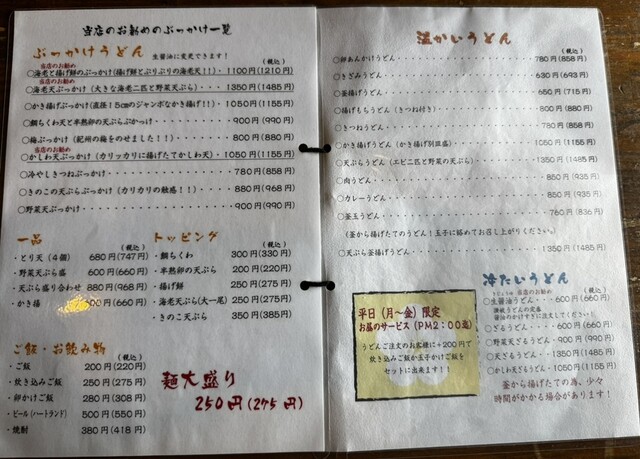 当店のお勧めのぶっかけ一覧
ぶっかけうどん 生醤油に変更できます！ (税込)
当店のお勧め
○海老と揚げ餅のぶっかけ(揚げ餅とぷりぷりの海老天！！)・1100円(1210円)
当店のお勧め
○海老天ぶっかけ(大きな海老二匹と野菜天ぷら)・・・1350円(1485円)
○かき揚げぶっかけ(直径15cmのジャンボなかき揚げ！！)・1050円(1155円)
○鯛ちく天と半熟卵の天ぷらぶかっけ・・・900円(990円)
○梅ぶっかけ(紀州の梅をのせました！！)・・・800円(880円)
当店のお勧め
○かしわ天ぶっかけ(カリッカリに揚げたてかしわ天)・1050円(1155円)
○冷やしきつねぶっかけ・・・780円(858円)
○きのこの天ぷらぶっかけ(カリカリの触感！！)・・・880円(968円)
○野菜天ぶっかけ・・・900円(990円)
一品 (税込)
・とり天(4個) 680円(747円)
・野菜天ぷら盛 600円(660円)
・天ぷら盛り合わせ 880円(968円)
・かき揚 600円(660円)
トッピング (税込)
・鯛ちくわ 300円(330円)
・半熟卵の天ぷら 200円(220円)
・揚げ餅 250円(275円)
・海老天ぷら(大一尾) 250円(275円)
・きのこ天ぷら 350円(385円)
ご飯・お飲み物 (税込)
・ご飯 200円(220円)
・炊き込みご飯 250円(275円)
・卵かけご飯 280円(308円)
・ビール(ハートランド) 500円(550円)
・焼酎 380円(418円)
麺大盛り
250円(275円)
温かいうどん
(税込)
○卵あんかけうどん・・・780円(858円)
○きざみうどん・・・630円(693円)
○釜揚げうどん・・・650円(715円)
○揚げもちうどん(きつね付き)・・・800円(880円)
○きつねうどん・・・780円(858円)
○かき揚げうどん(かき揚げ別皿盛)・・・1050円(1155円)
○天ぷらうどん(エビ二匹と野菜の天ぷら)・・・1350円(1485円)
○肉うどん・・・850円(935円)
○カレーうどん・・・850円(935円)
○釜玉うどん・・・760円(836円)
(釜から揚げたてのうどん！玉子に絡めてお召し上がりください。)
○天ぷら釜揚げうどん・・・1350円(1485円)
冷たいうどん
当店のお勧め (税込)
○生醤油うどん・・・600円(660円)
讃岐うどんの定番
醤油のかけすぎに注文してください！
○ざるうどん・・・600円(660円)
○野菜天ざるうどん・・900円(990円)
○天ざるうどん・・・1350円(1485円)
○かしわ天ざるうどん・1050円(1155円)
釜から揚げたての為、少々
時間がかかる場合があります！
平日(月～金)限定
お昼のサービス(PM2:00迄)
うどんご注文のお客様に+200円で
炊き込みご飯か玉子かけご飯を
セットに出来ます！！